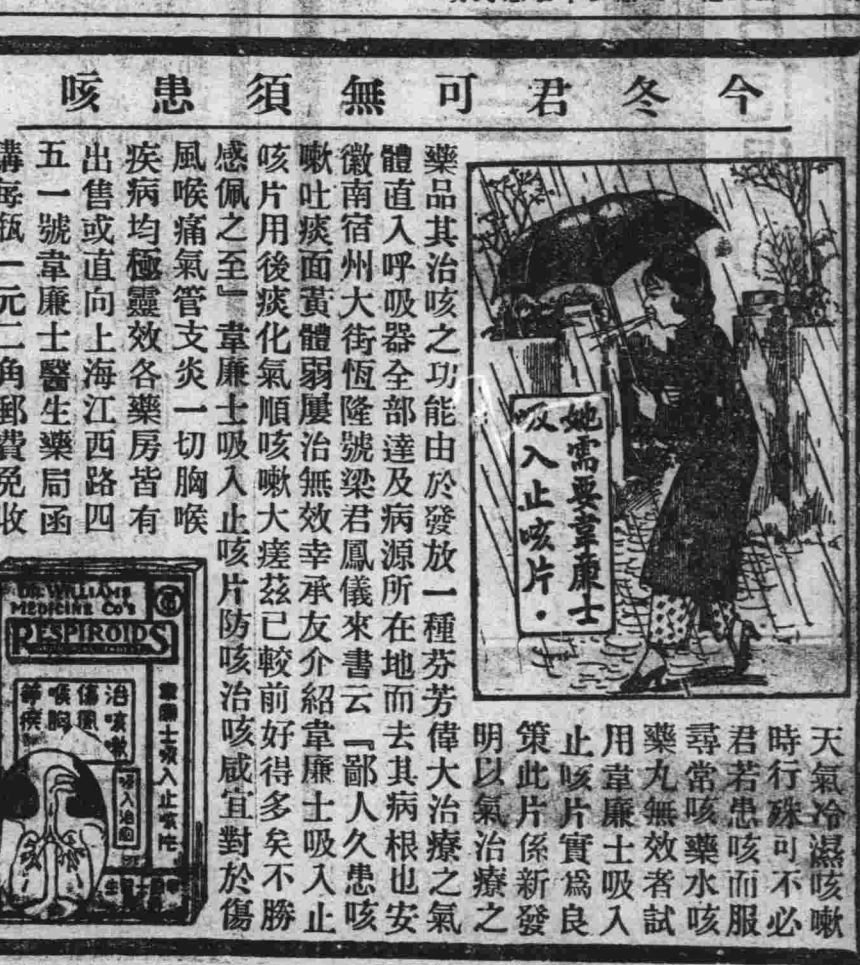 今冬君可無須患咳
她需要韋廉士
吸入止咳片。
天氣冷濕咳嗽
時行殊可不必
君若患咳而服
尋常咳藥水咳
藥丸無效者試
用韋廉士吸入
止咳片實爲良
策此片係新發
明以氣治療之
藥品其治咳之功能由於發放一種芬芳偉大治療之氣
體直入呼吸器全部達及病源所在地而去其病根也安
徽南宿州大街恆隆號梁君鳳儀來書云『鄙人久患咳
嗽吐痰面黃體弱屢治無效幸承友介紹韋廉士吸入止
咳片用後痰化氣順咳嗽大瘥茲已較前好得多矣不勝
感佩之至』韋廉士吸入止咳片防咳治咳咸宜對於傷
風喉痛氣管支炎一切胸喉
疾病均極靈效各藥房皆有
出售或直向上海江西路四
五一號韋廉士醫生藥局函
購每瓶一元二角郵費免收
DR. WILLIAMS
MEDICINE CO'S
RESPIROIDS
治咳嗽
傷風
喉胸
諸疾
韋廉士吸入止咳片
吸入治